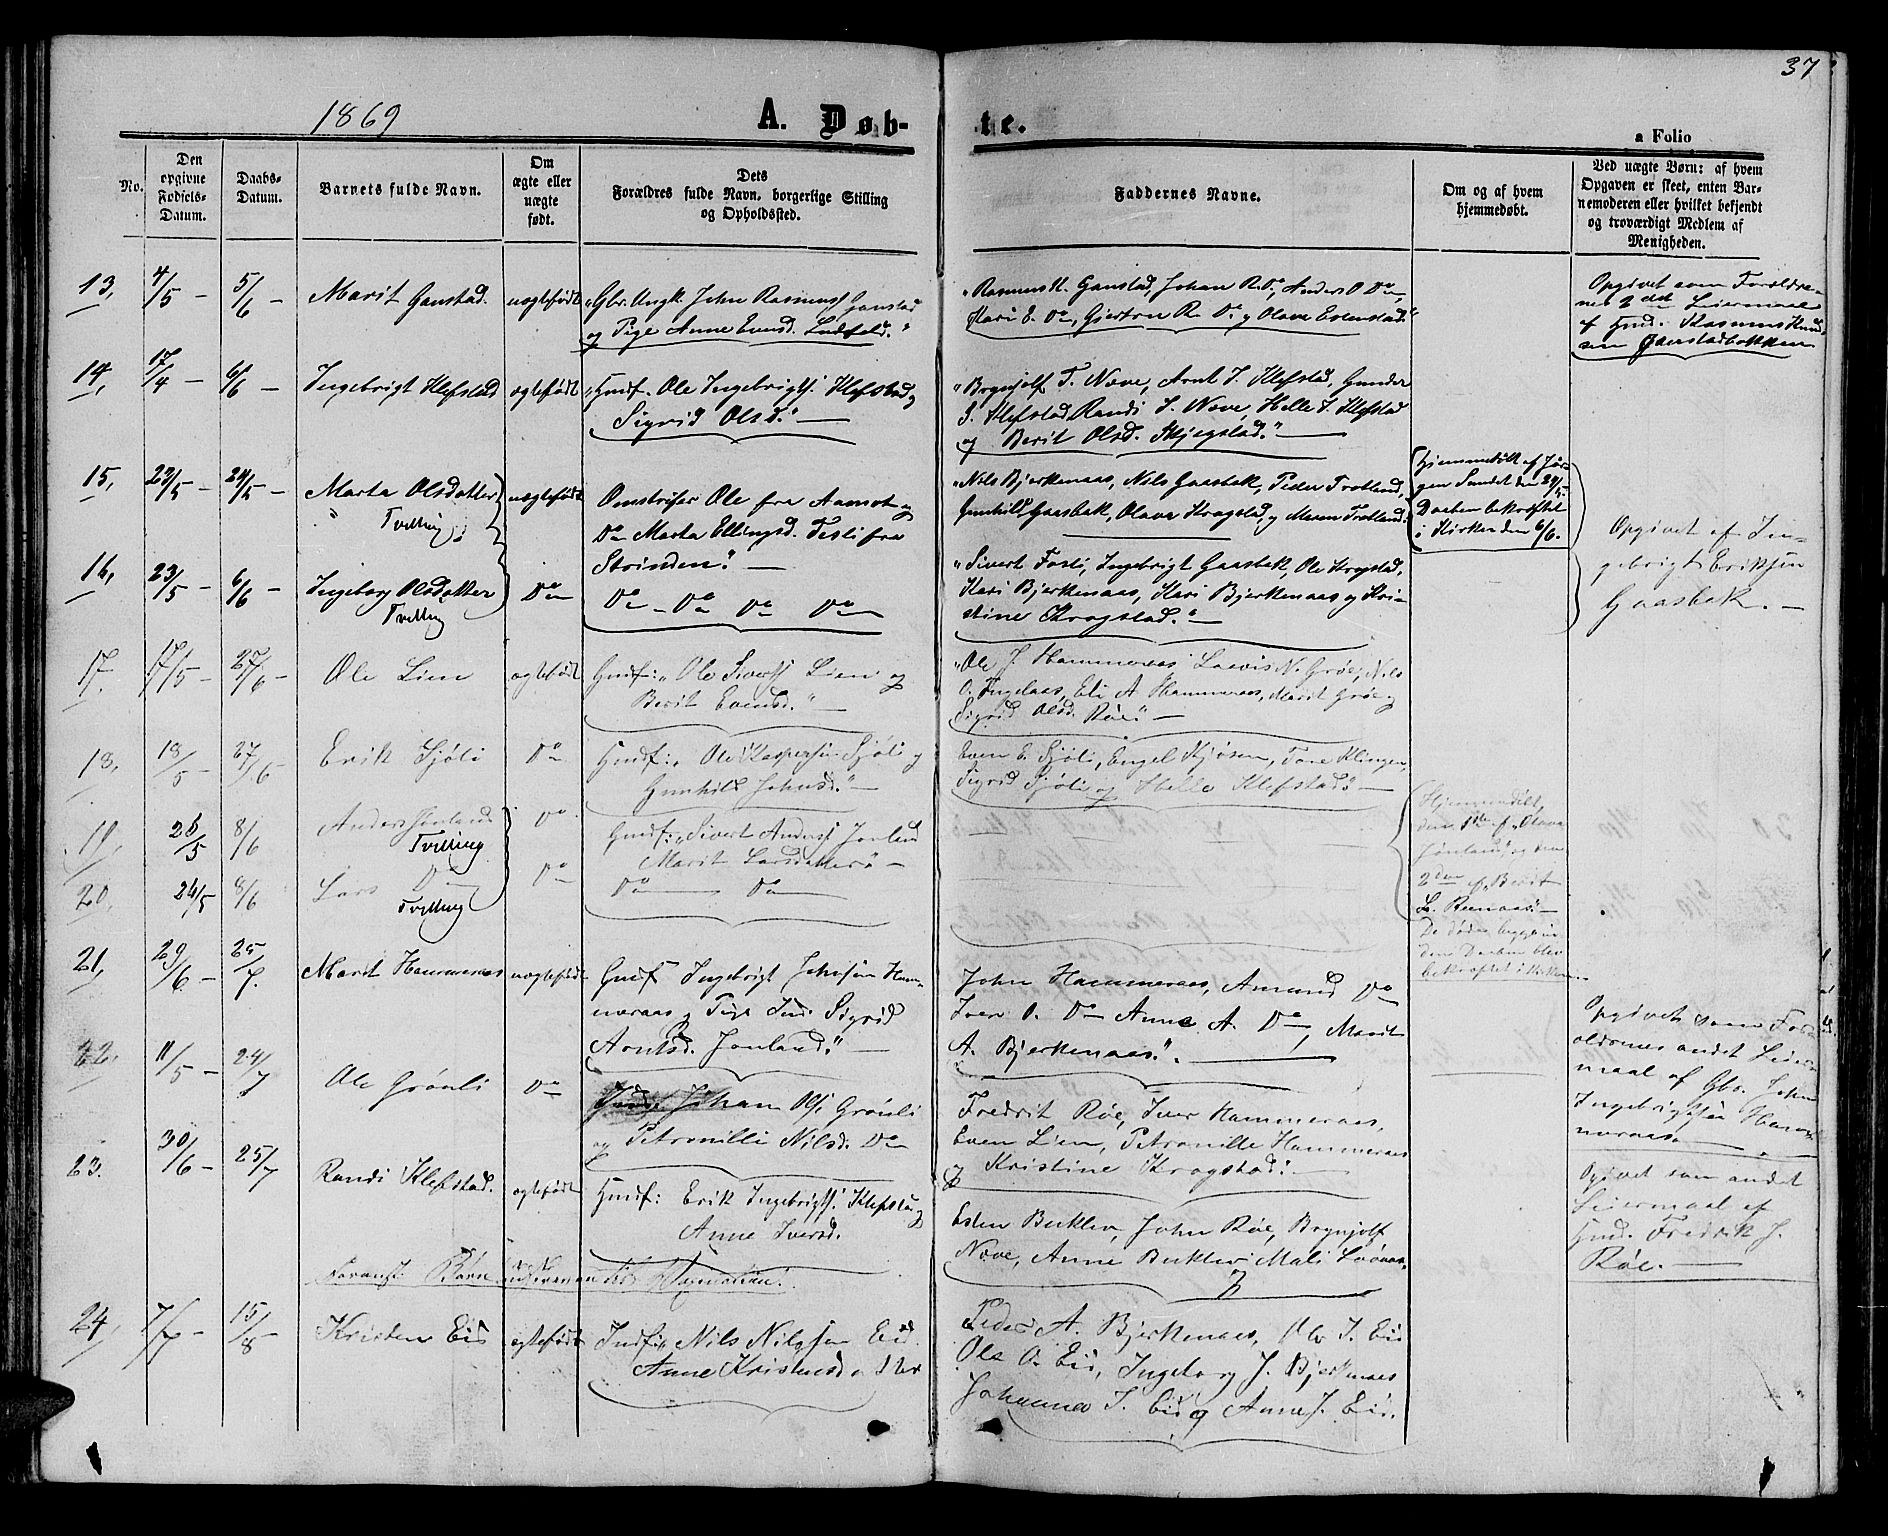 37
1869
A. Døb-
te.
a Folio
No.
Den
opgivne
Fødsels-
Datum.
Daabs-
Datum.
Barnets fulde Navn.
Om
ægte eller
uægte
født.
Dets
Forældres fulde Navn, borgerlige Stilling
og Opholdssted.
Faddernes Navne.
Om og af hvem
hjemmedøbt.
Ved uægte Børn: af hvem
Opgaven er skeet, enten Bar-
nemoderen eller hvilket bekjendt
og troværdigt Medlem af
Menigheden.
13, 4/5 – 5/6 – Marit Ganstad. uægtefødt „Gbr. Ungk. John Rasmuss Ganstad
og Pige Anne Evensd.
„Rasmus K. Ganstad, Johan R. Do, Anders O Do,
Kari E. Do, Gjertru R. Do og Olave Estenstad."
Opgivet som Foræld-
nes 2det Leiermaal
af Gmd. Rasmus Knud
sen
14, 17/4 – 6/6 – Ingebrigt Klefstad ægtefødt „Gmdf. Ole Ingebrigts. Klefstad og
Sigrid Olsd." –
„Brynjolf T. Næve, Arnt I. Klefstad, Gunder
I. Klefstad, Randi I. Næve, Helle I. Klefstad
og Berit Olsd. Skjegstad." –
15, 23/5 – 24/5 – Marta Olsdatter uægtefødt Omstreifer Ole fra Aamot og
Tvilling
Do Marta Ellingsd. Tesli fra
Strinden." –
„Nils Bjerkenaas, Nils Gaasbak, Peder Trotland,
Gunhild Gaasbak, Olava Kragstad, og Maren Trotland.
Hjemmedøbt af Jør-
gen Sundet den 24/5
Daaben bekræftet
i Kirken den 6/6.
Opgivet af In-
gebrigt Eriksen
Gaasbak. –
16, 23/5 – 6/6 – Ingeborg Olsdatter Do
Tvilling
Do – Do Do Do
„Sivert Fosti, Ingebrigt Gaasbak, Ole Kragstad,
Kari Bjerkenaas, Kari Bjerkenaas og Kri-
stine Kragstad." –
17. 17/5 – 27/6 – Ole Lien ægtefødt Gmdf: „Ole Siverts Lien og
Berit Evensd." –
„Ole J. Hammeraas N. Grøe, Nils
O. Eli A Hammeraas, Marit Grøe og
Sigrid Olsd. Røe" –
18, 18/5 – 27/6 – Erik Sjøli Do Gmdf: „Ole Kaspersen Sjøli og
Gunhild Johnsd." –
Even E. Sjøli, Engel Kjøsen, Tore Klingen,
Sigrid Sjøli og Helle Klefstad." –
19, 23/5 8/6 Anders Jønland Do Gmdf: „Sivert Anders. Jønland
Tvilling
Marit Larsdatter" –
Hjemmedøbt,
den 1ste af „Olava
Jønland" og den
2den af „Berit
L. –
De døde begge in
den Daaben blev
bekræftet i Kirken.
20, 24/5 8/6 Lars Do Do
Tvilling
Do – Do
21, 29/6 – 25/7. Marit Hammeraas uægtefødt Gmdf Ingebrigt Johnsen Ham-
meraas og Pige Ind. Sigrid
Arntsd. Jonland." –
John Hammeraas, Amund Do
Iver O. Do Anne A. Do, Marit
A. Bjerkenaas." –
Opgivet som For-
ældrenes andet Leier-
maal af Gbr. John
Ingebrigtsen Ham-
meraas.
22, 11/5 – 24/7 Ole Grønli Do Johan Ols. Grønli
og Petronille Nilsd. Do
Fredrik Røe, Iver Hammeraas,
Even Lien, Petronille Hammeraas
og Kristine Kragstad." –
Opgivet som andet
Leiermaal af
Gmd. Fredrik J.
Røe. –
23. 30/6 – 25/7 Randi Klefstad. ægtefødt Gmdf: Erik Ingebrigts. Klefstad og
Anne Iversd.
Esten Buklev, John Røe, Brynjolf
Næve, Anne Buklev Mali
Foranst. Børn
24, 7/7 – 15/8 – Kristen Eid ægtefødt Indf: „Nils Nilssen Eid
Anne Kristensd.
Peder A. Bjerkenaas, Ole I. Eid
Ole O. Eid, Ingeborg J. Bjerkenaas
Johanna I. Eid og Anne J. Eid.